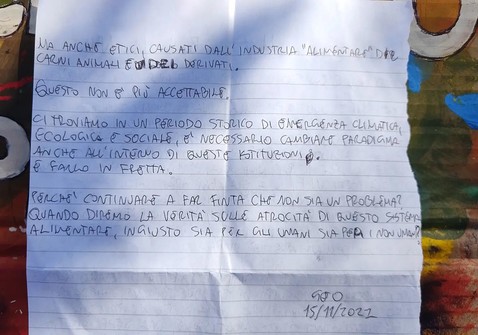 MA ANCHE ETICI, CAUSATI DALL'INDUSTRIA "ALIMENTARE" DI
CARNI ANIMALI E DEI DERIVATI.
QUESTO NON E' PIÙ ACCETTABILE.
CI TROVIAMO IN UN PERIODO STORICO DI EMERGENZA CLIMATICA,
ECOLOGICA E SOCIALE, E' NECESSARIO CAMBIARE PARADIGMA
ANCHE ALL'INTERNO DI QUESTE ISTITUZIONI.
E FARLO IN FRETTA.
PERCHÉ CONTINUARE A FAR FINTA CHE NON SIA UN PROBLEMA?
QUANDO DIREMO LA VERITÀ SULLE ATROCITÀ DI QUESTO SISTEMA
ALIMENTARE, INGIUSTO SIA PER GLI UMANI SIA PER I NON UMANI?
15/11/2021